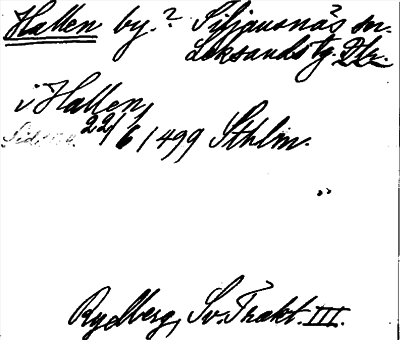 Hallen by.? Siljansnäs sn.
Leksands tg. Dlr.
i Hallen,
22/6 1499 Sthlm.
Rydberg, Sv. Trakt. III.